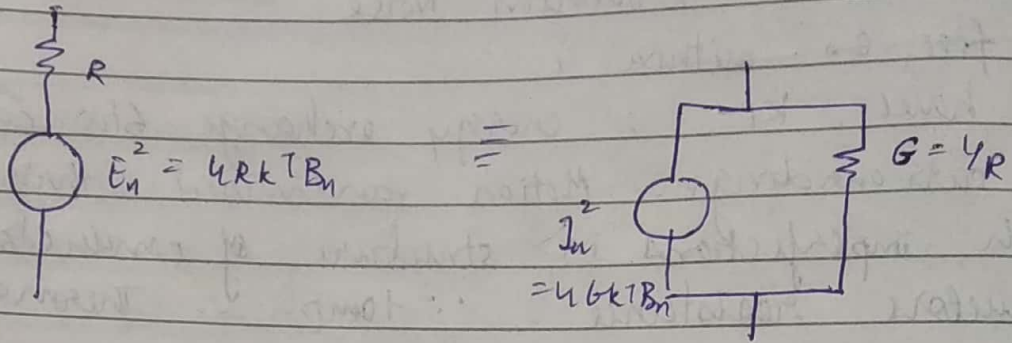 R
E_n² = 4RkTB_n
=
G = 1/R
I_n²
= 4GkTB_n